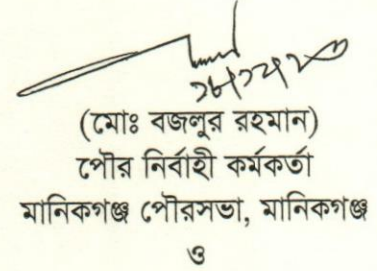 (মোঃ বজলুর রহমান)
পৌর নির্বাহী কর্মকর্তা
মানিকগঞ্জ পৌরসভা, মানিকগঞ্জ
ও